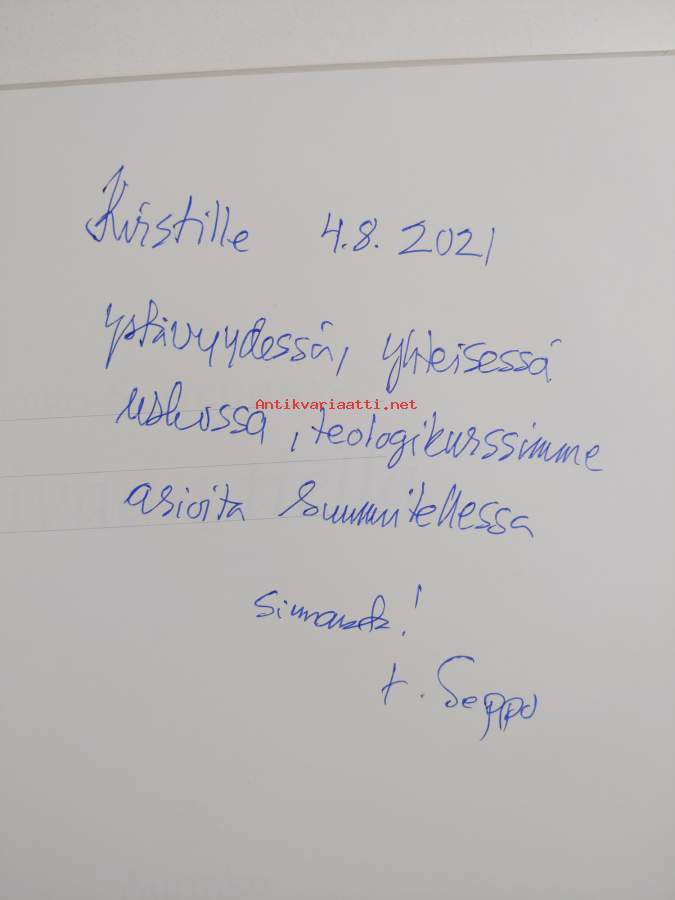 Kirstille 4.8. 2021
ystävyydessä, yhteisessä
Antikvariaatti.net
uskossa, teologikurssimme
asioita suunnitellessa
t. Seppo